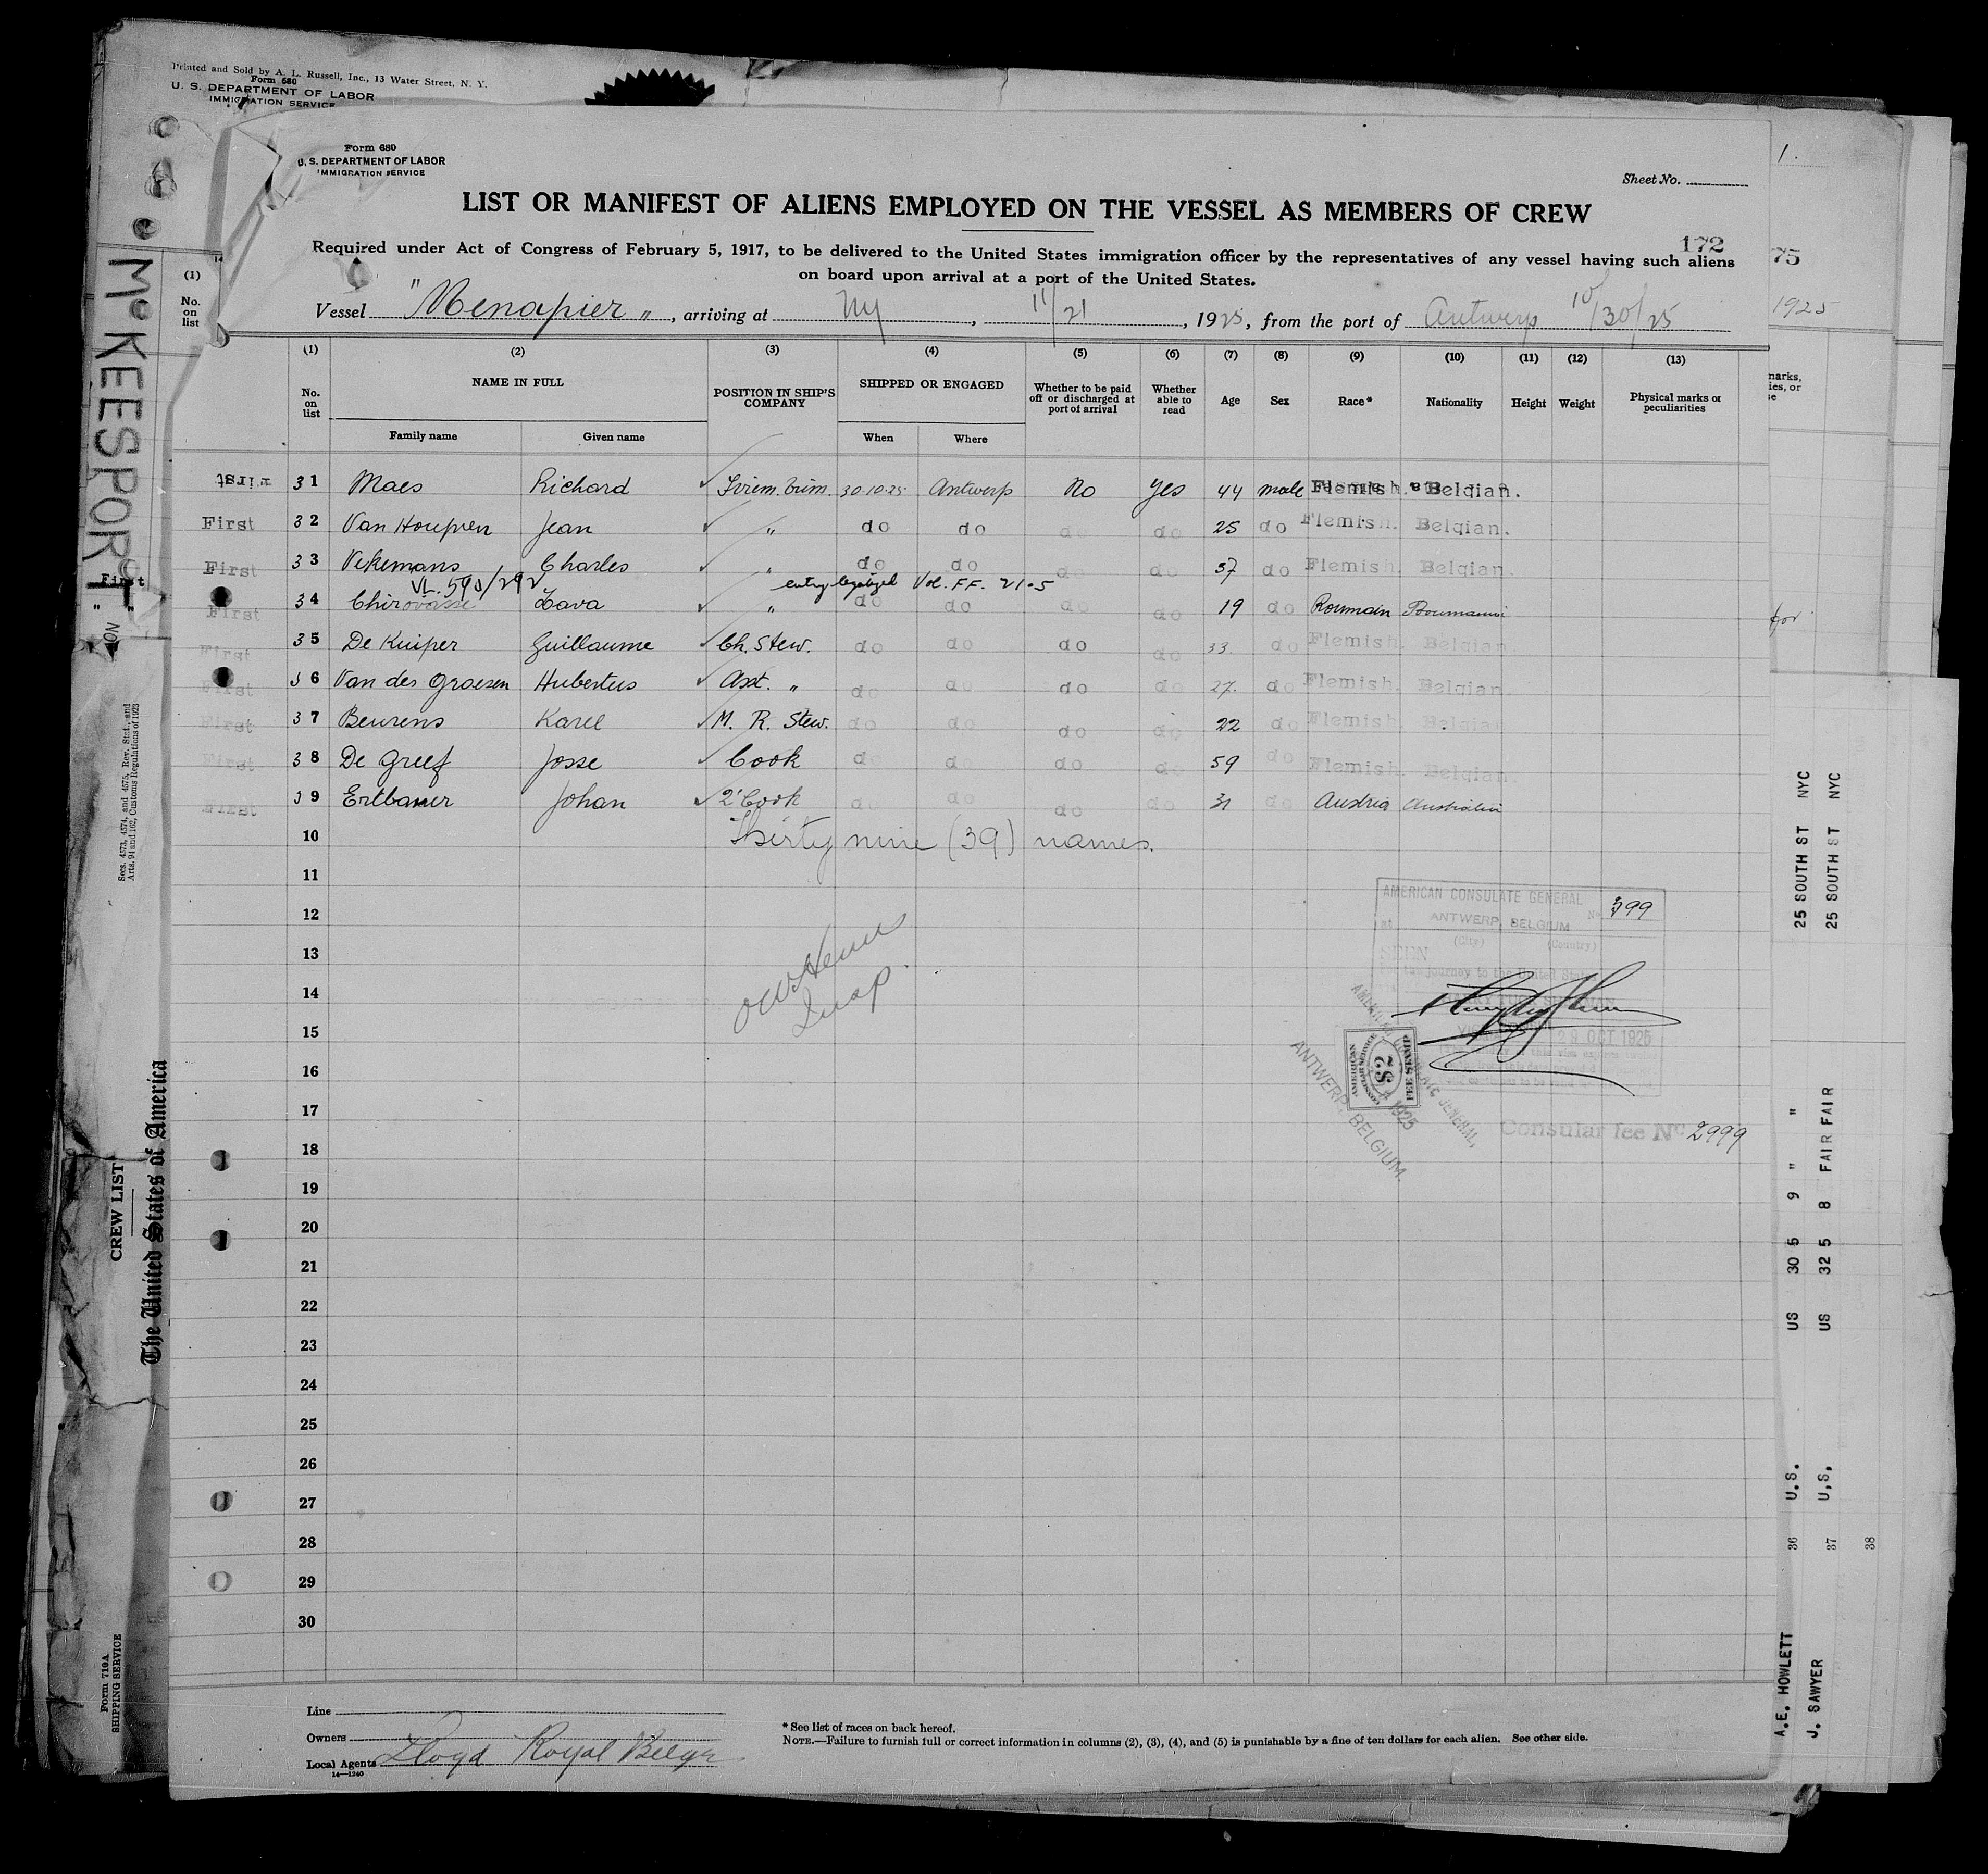 Printed and Sold by A. L. Russell, Inc., 13 Water Street, N. Y.
Form 680
U. S. DEPARTMENT OF LABOR
IMMIGRATION SERVICE
Form 680
U. S. DEPARTMENT OF LABOR
IMMIGRATION SERVICE
Sheet No.
1.
LIST OR MANIFEST OF ALIENS EMPLOYED ON THE VESSEL AS MEMBERS OF CREW
172
75
Required under Act of Congress of February 5, 1917, to be delivered to the United States immigration officer by the representatives of any vessel having such aliens
on board upon arrival at a port of the United States.
Vessel "Menapier", arriving at Ny, 11/21, 1925, from the port of Antwerp 10/30/25
1925
(1) (2) (3) (4) (5) (6) (7) (8) (9) (10) (11) (12) (13)
No. on list NAME IN FULL POSITION IN SHIP'S COMPANY SHIPPED OR ENGAGED Whether to be paid off or discharged at port of arrival Whether able to read Age Sex Race* Nationality Height Weight Physical marks or peculiarities
Family name Given name When Where
First 31 Maes Richard 30.10.25 Antwerp No yes 44 male Flemish. Belgian.
First 32 Jean " do do do do 25 do Flemish. Belgian.
First 33 Vekemans Charles " do do do do 37 do Flemish. Belgian.
VL. 590/292 entry legalized Vol. FF. 21.5
First 34 Zava " do do do do 19 do Rouman
First 35 De Kuiper Guillaume Ch. Stew. do do do do 33. do Flemish. Belgian
First 36 Van der Groesen Hubertus Asst. " do do do do 27. do Flemish. Belgian.
First 37 Beurens Karel M. R. Stew. do do do do 22 do Flemish. Belgian
First 38 De Greef Josse Cook do do do do 59 do Flemish. Belgian.
First 39 Ertbauer Johan 2' Cook do do do do 31 do Austria
10 Thirty nine (39) names.
11
12
13
14
15
16
17
18
19
20
21
22
23
24
25
26
27
28
29
30
Insp.
AMERICAN CONSULATE GENERAL
No 399
at ANTWERP, BELGIUM
(City) (Country)
SEEN
journey to the United States
29 OCT 1925
AMERICAN CONSULAR SERVICE
$2
FEE STAMP
1925
ANTWERP, BELGIUM.
Consular fee No 2999
Line
Owners
Local Agents Lloyd Royal Belge
14—1240
* See list of races on back hereof.
NOTE.—Failure to furnish full or correct information in columns (2), (3), (4), and (5) is punishable by a fine of ten dollars for each alien. See other side.
(1)
No. on list
McKEESPORT
First
" "
NOV
Secs. 4573, 4574, and 4575, Rev. Stat., and
Arts. 94 and 102, Customs Regulations of 1923
CREW LIST
The United States of America
Form 710A
SHIPPING SERVICE
for
A.E. HOWLETT 36 U.S. US 30 5 9 " " 25 SOUTH ST NYC
J. SAWYER 37 U,S, US 32 5 8 FAIR FAIR 25 SOUTH ST NYC
38